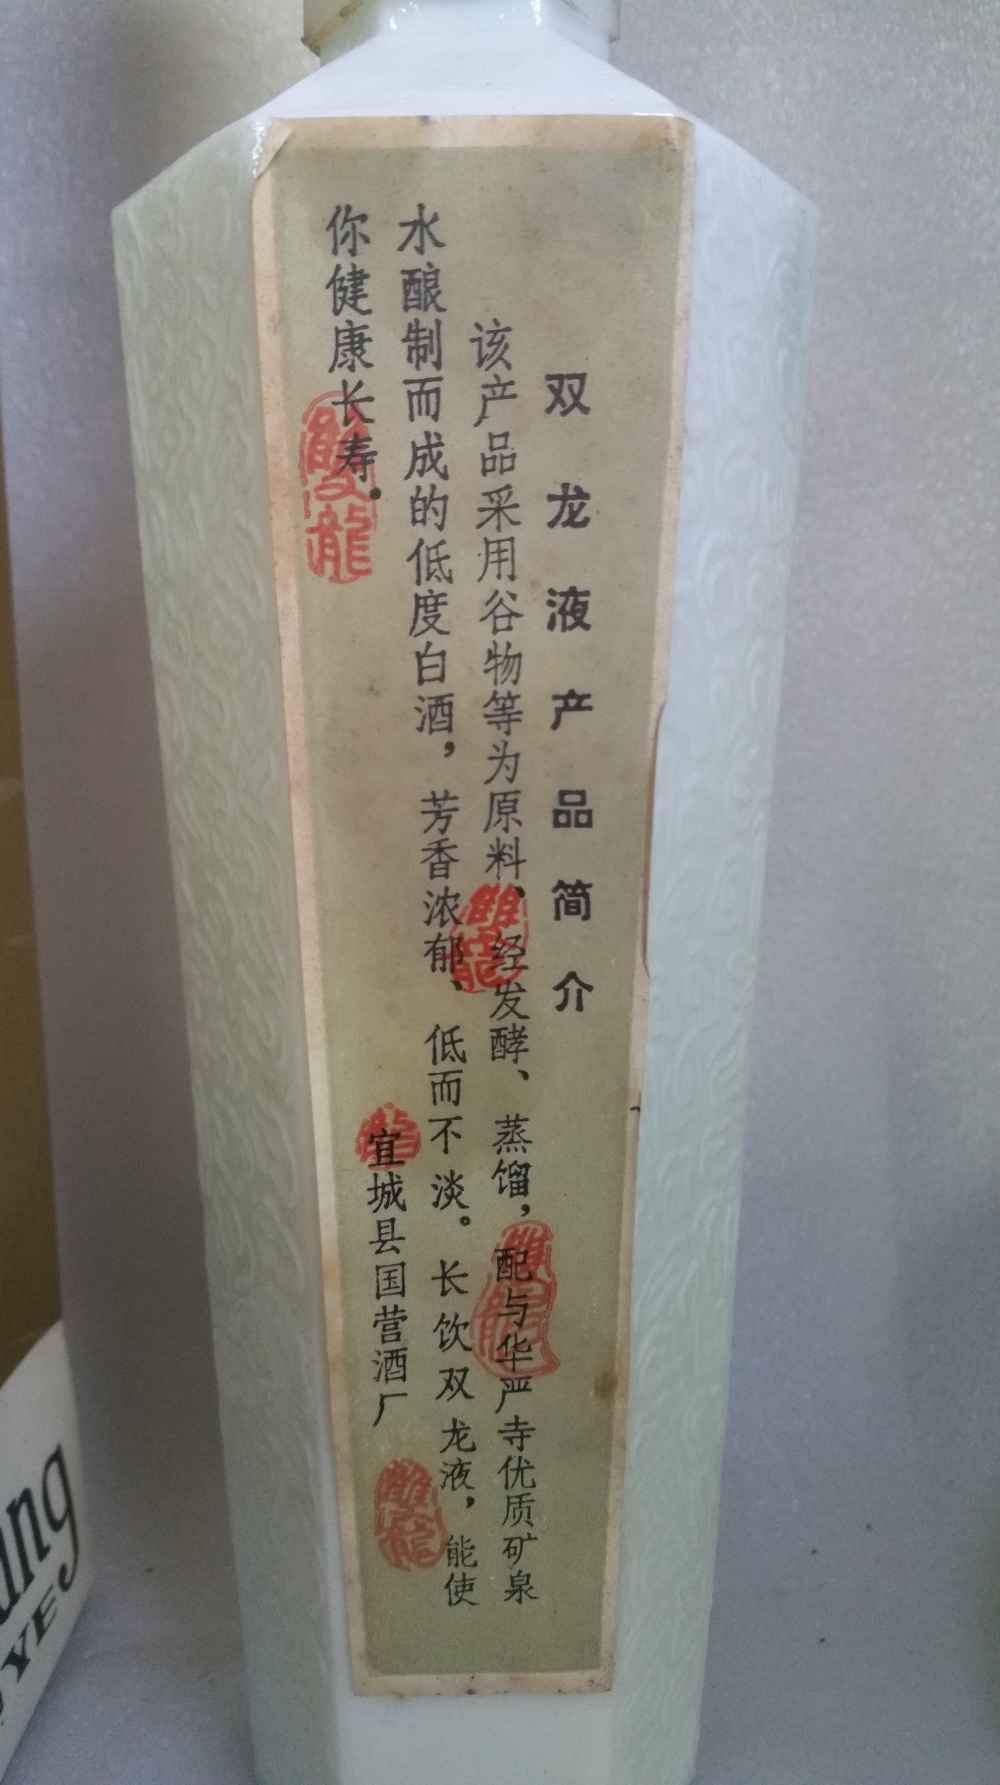 双龙液产品简介
该产品采用谷物等为原料、经发酵、蒸馏，配与华严寺优质矿泉
水酿制而成的低度白酒，芳香浓郁、低而不淡。长饮双龙液，能使
你健康长寿。
宜城县国营酒厂
雙龍
雙龍
龍
雙龍
雙龍
YE